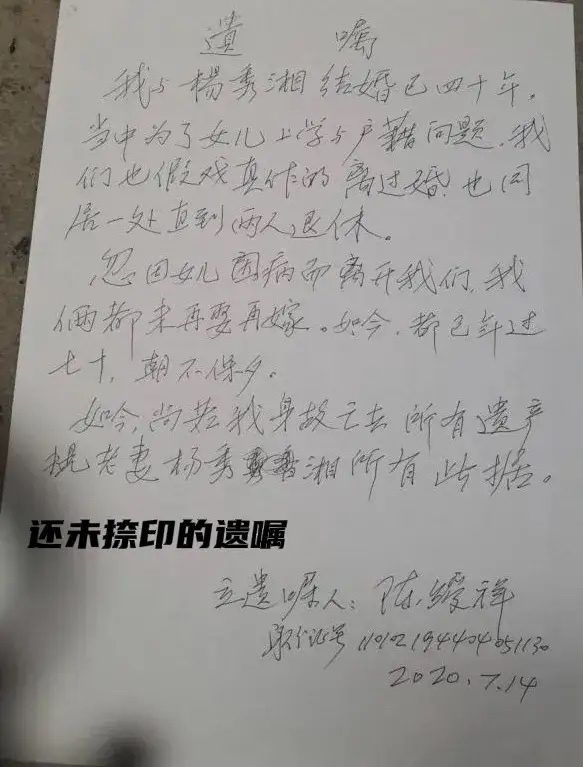 遺 嘱
我与楊秀湘结婚已四十年，
当中为了女儿上学与户籍问题，我
们也假戏真作的离过婚，也同
居一处直到两人退休。
忽因女儿因病而离开我们，我
俩都未再娶再嫁。如今，都已年过
七十，朝不保夕。
如今，尚若我身故亡去 所有遗产
老妻杨秀湘所有 此据。
还未捺印的遗嘱
立遗嘱人：陈绶祥
身份证号
2020.7.14